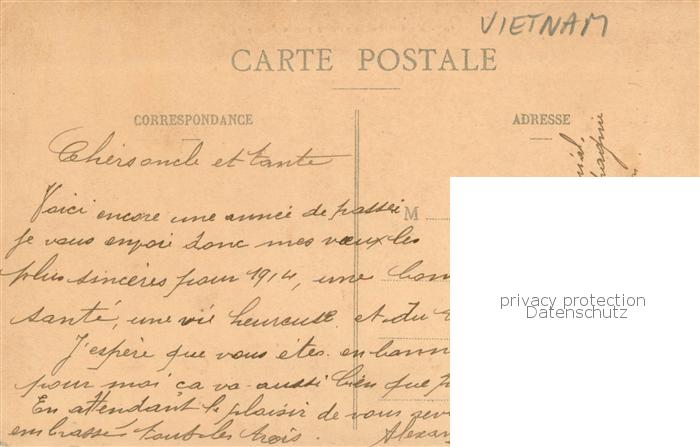 VIETNAM
CARTE POSTALE
CORRESPONDANCE
ADRESSE
Chers oncle et tante
Voici encore une année de passée
je vous envoie donc mes vœux les
plus sincères pour 1914, une bonn
santé, une vie heureuse. et du
J'espère que vous êtes en bonn
pour moi ça va aussi bien que p
En attendant le plaisir de vous
embrasse tous les trois.
M
privacy protection
Datenschutz